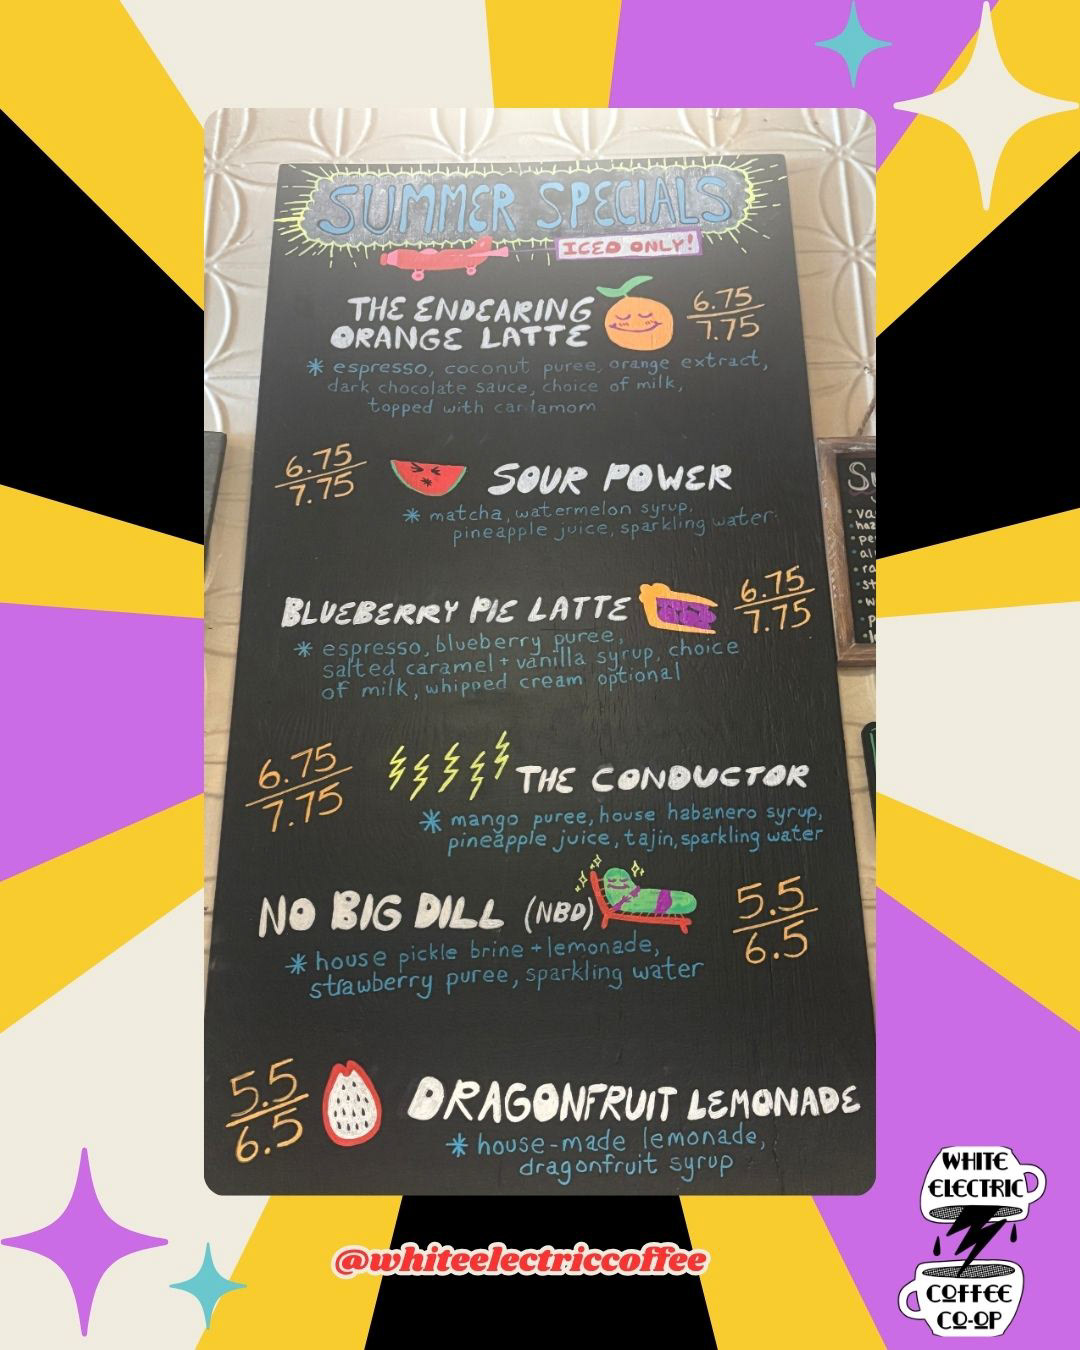 SUMMER SPECIALS
ICED ONLY!
THE ENDEARING
ORANGE LATTE
6.75
7.75
* espresso, coconut puree, orange extract,
dark chocolate sauce, choice of milk,
topped with cardamom
6.75
7.75
SOUR POWER
* matcha, watermelon syrup,
pineapple juice, sparkling water
BLUEBERRY PIE LATTE
6.75
7.75
* espresso, blueberry puree,
salted caramel + vanilla syrup, choice
of milk, whipped cream optional
6.75
7.75
THE CONDUCTOR
* mango puree, house habanero syrup,
pineapple juice, tajin, sparkling water
NO BIG DILL (NBD)
5.5
6.5
* house pickle brine + lemonade,
strawberry puree, sparkling water
5.5
6.5
DRAGONFRUIT LEMONADE
* house-made lemonade,
dragonfruit syrup
@whiteelectriccoffee
WHITE
ELECTRIC
COFFEE
CO-OP